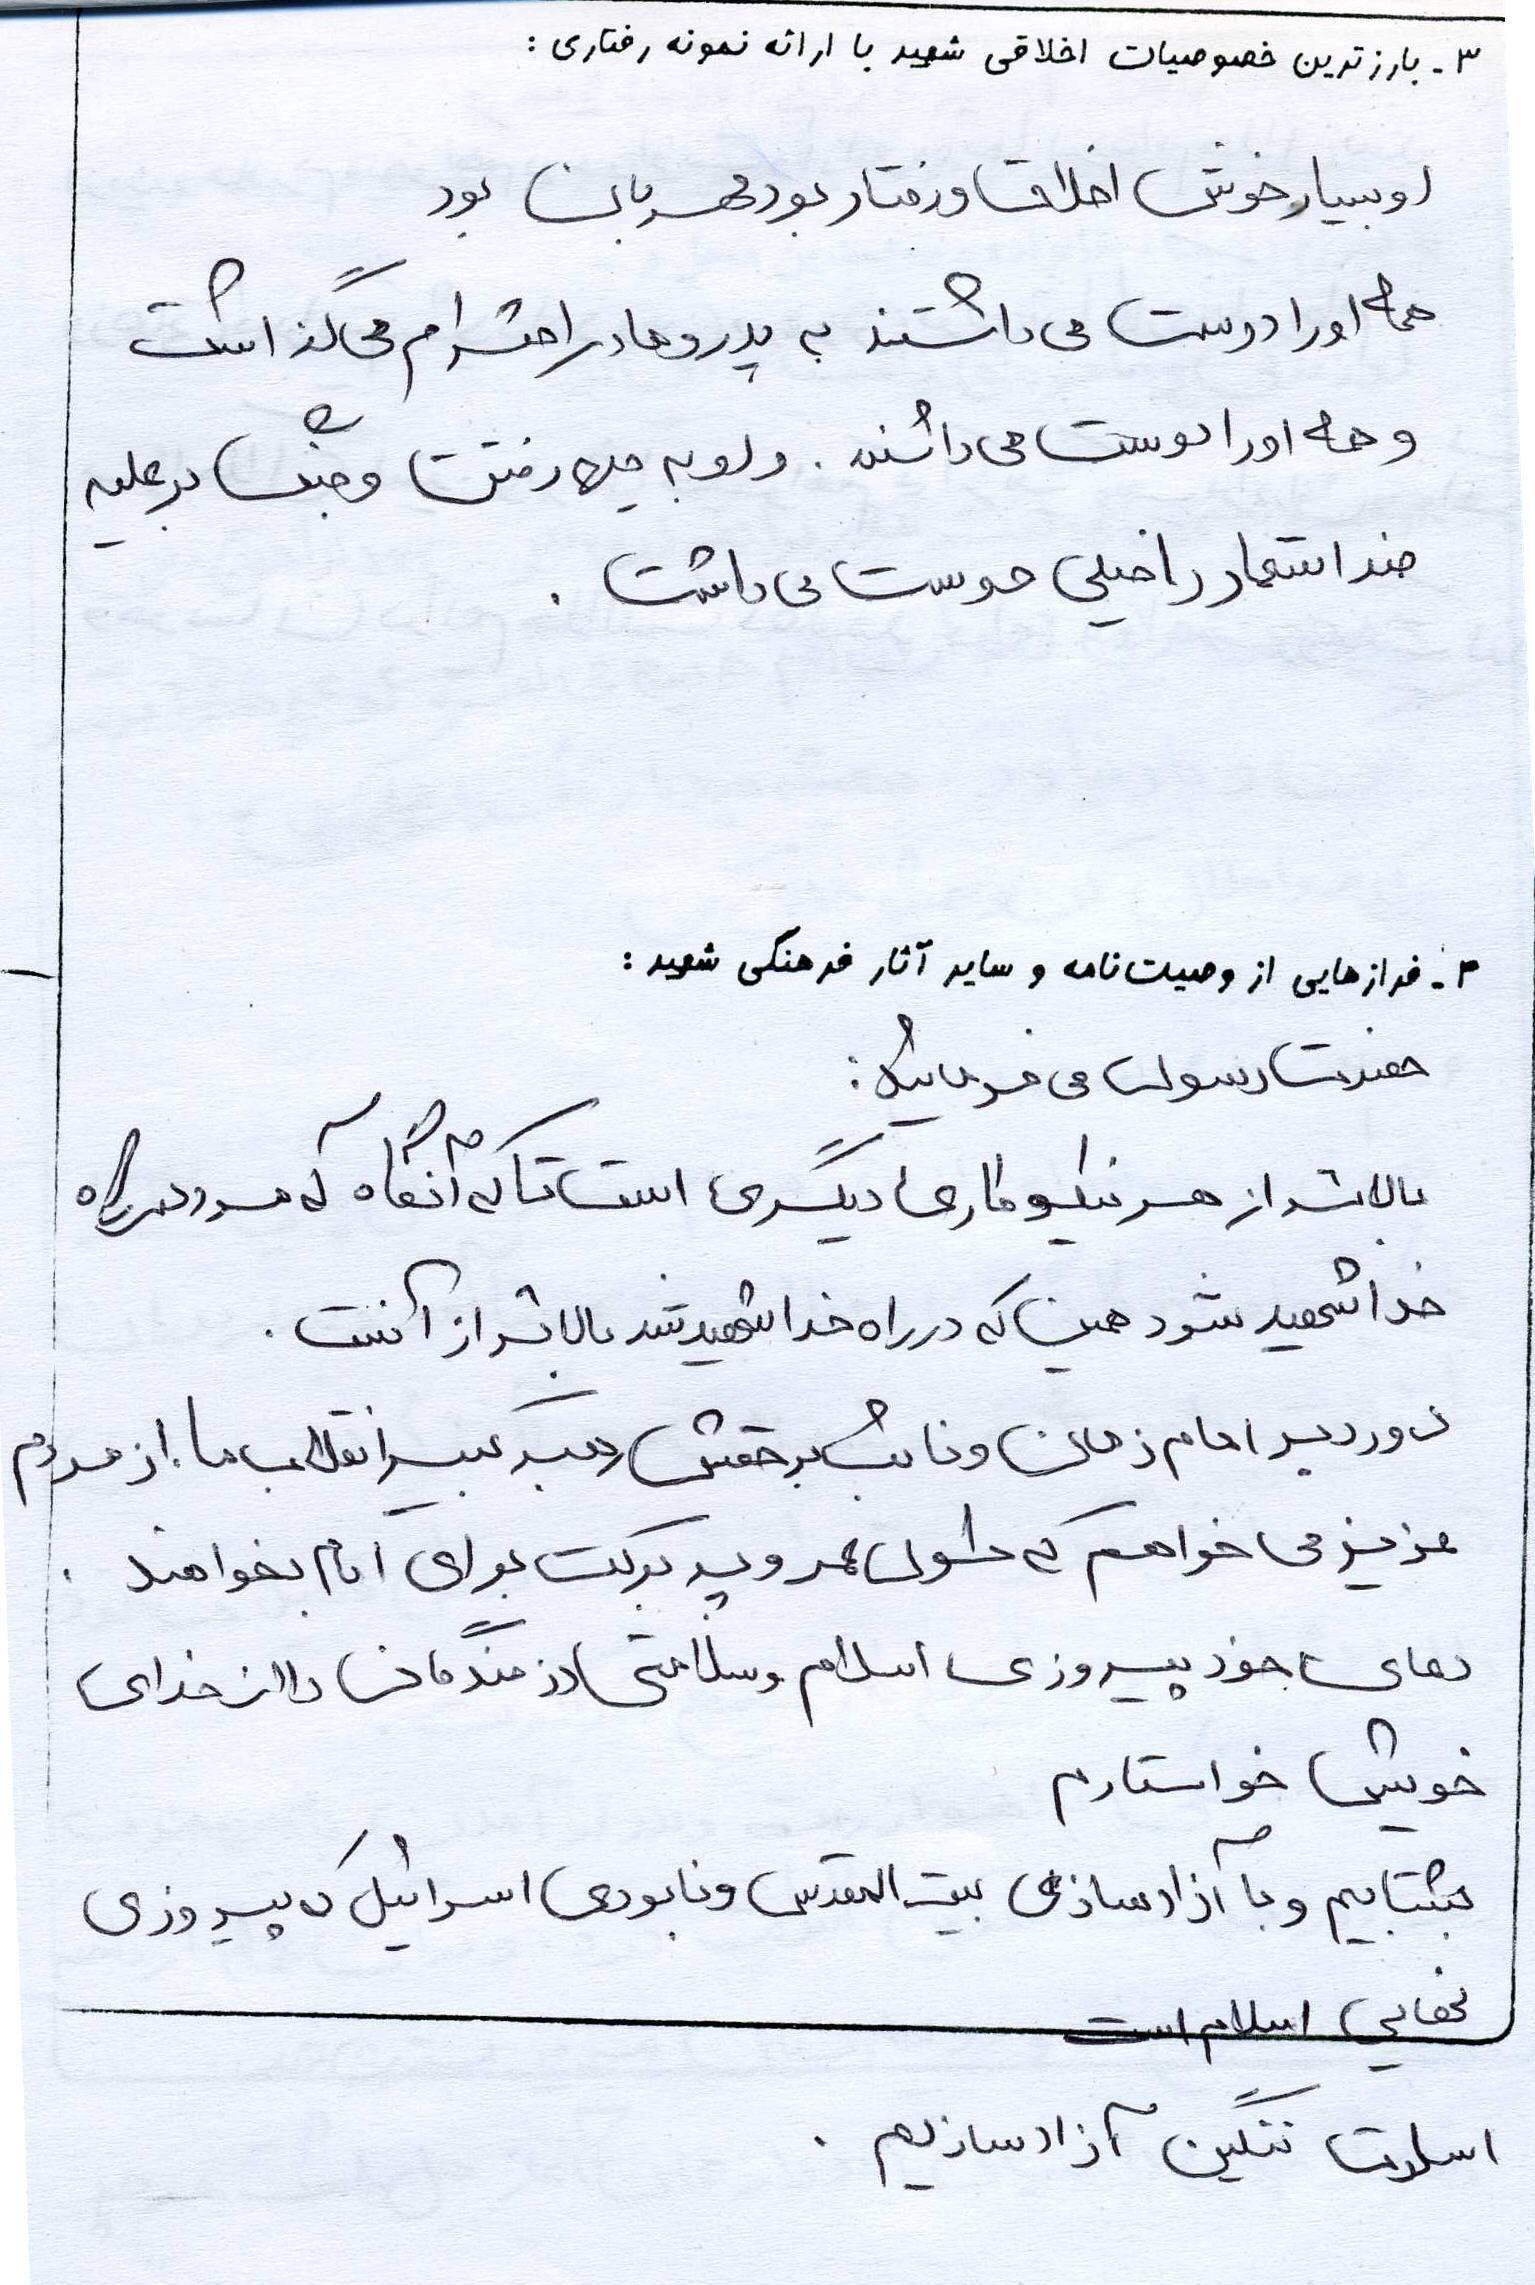 ۳ـ بارزترین خصوصیات اخلاقی شهید با ارائه نمونه رفتاری :
او بسیار خوش اخلاق و رفتار بود مهربان بود
همه او را دوست می داشتند به پدر و مادر احترام می گذاشت
و همه او را دوست می داشتند . و او به جبهه رفتن و جنگ بر علیه
ضد استعمار را خیلی دوست می داشت .
۴ـ فرازهایی از وصیت‌نامه و سایر آثار فرهنگی شهید :
حضرت رسول می فرماید :
بالاتر از هر نیکوکاری دیگری است تا که آنگاه که مرد در راه
خدا شهید شود همین که در راه خدا شهید شد بالاتر از آنست .
درود بر امام زمان و نائب بر حقش رهبر کبیر انقلاب ما . از مردم
عزیز می خواهم که طول عمر و پر برکت برای امام بخواهند .
دعای خود پیروزی اسلام و سلامتی رزمندگان را از خدای
خویش خواستارم
بشتابیم و با آزادسازی بیت المقدس و نابودی اسرائیل که پیروزی
نهایی اسلام است
اسارت ننگین آزاد سازیم .